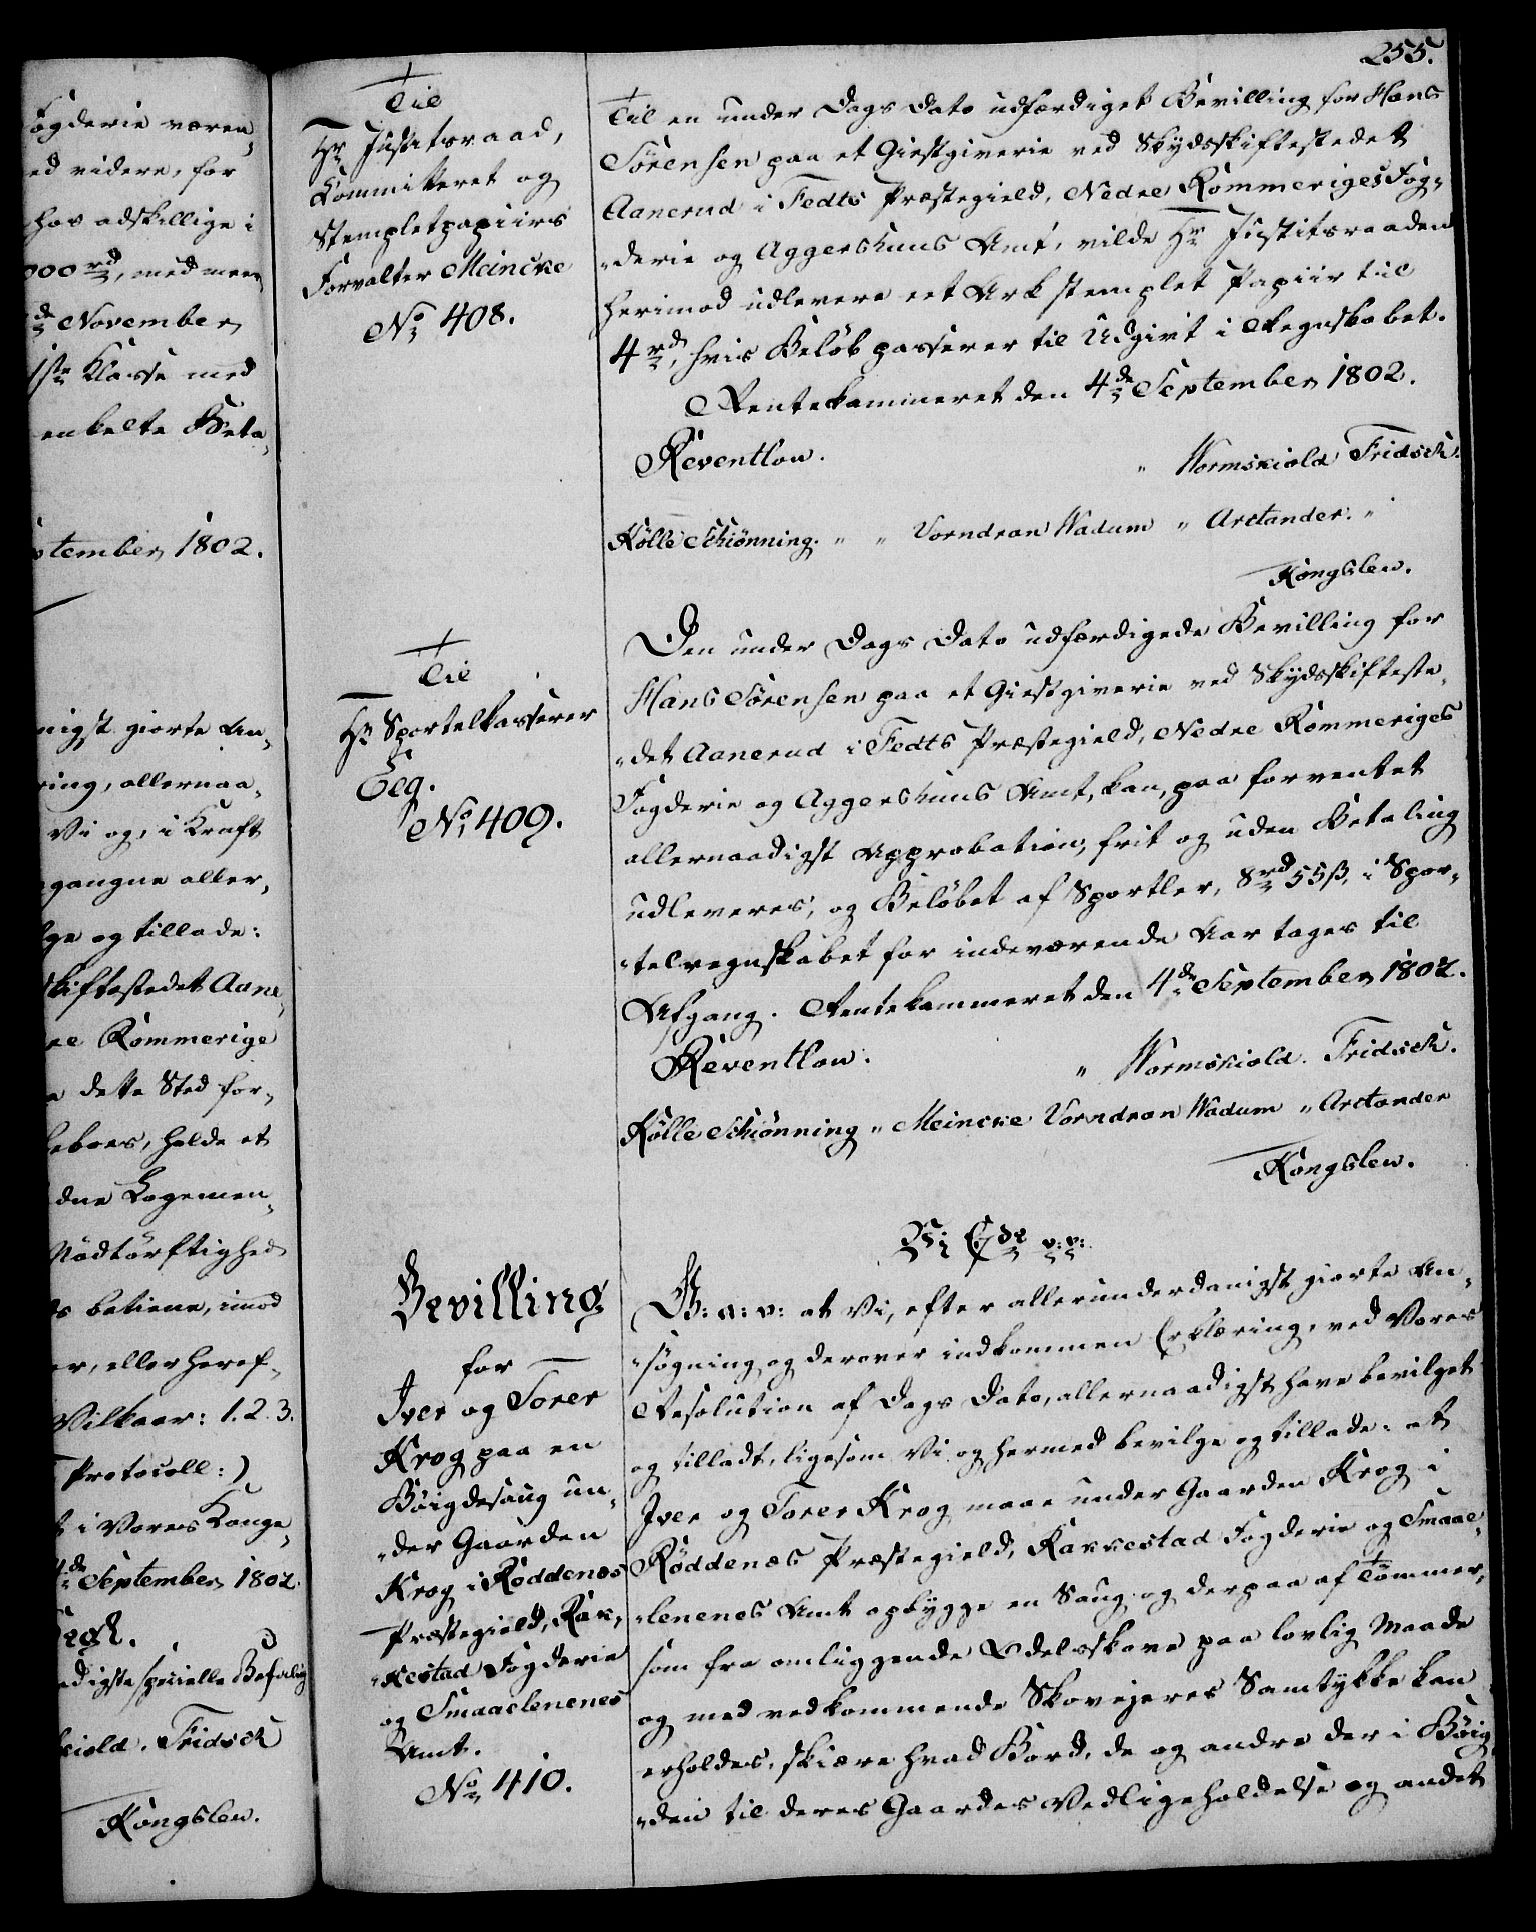 øgderie væren¸
ed videre, for
hos adskillige i
000 rd, med meer
de November
1ste Klasse med
enkelte Beta¸
ptember 1802.
nigst giorte An¸
ring, allernaa¸
Vi og, i Kraft
gangne aller¸
lge og tillade:
skiftestedet Aane¸
re Rommerige
a dette Sted for¸
beboes, holde et
dne Logemen¸
Nødtørftighed
es betiene, imod
er, eller heref¸
Vilkaar: 1. 2. 3.
Protocoll:)
t i Vores Konge¸
4de September 1802.
digste specielle Befaling
kiold. Fridsch
Kongslew.
255.
Til
Hr Justitsraad,
Committeret og
Stempletpapiirs
Forvalter Meincke
No 408.
Til en under Dags Dato udfærdiget Bevilling for Hans
Sørensen paa et Giestgiverie ved Skydsskiftestedet
Aanerud i Fedts Præstegield, Nedre Rommeriges Fog¸
¸derie og Aggershuus Amt, vilde Hr Justitsraaden
herimod udlevere eet Ark stemplet Papiir til
4 rd, hvis Beløb passerer til Udgivt i Regnskabet.
Rentekammeret den 4de September 1802.
Reventlow. " Wormskiold Fridsch.
Kølle Schiønning. " " Vorndran Wadum " Arctander. "
Kongslew.
Til
Hr Sportelkasserer
Elg.
No 409.
Den under Dags Dato udfærdigede Bevilling for
Hans Sørensen paa et Giestgiverie ved Skydsskifteste¸
¸det Aanerud i Fedts Præstegield, Nedre Rommeriges
Fogderie og Aggershuus Amt, kan, paa forventet
allernaadigst Approbation, frit og uden Betaling
udleveres, og Beløbet af Sportler, 8 rd 55 ß, i Spor¸
¸telregnskabet for indeværende Aar tages til
Afgang. Rentekammeret den 4de September 1802.
Reventlow. " Wormskiold. Fridsch.
Kølle Schiønning " Meincke Vorndran Wadum " Arctander
Kongslew.
Bevilling
for
Iver og Torer
Krog paa en
Bøigdesaug un¸
¸der Gaarden
Krog i Røddenes
Præstegield, Rak¸
¸kestad Fogderie
og Smaaelenenes
Amt.
No 410.
Vi C 7de v: v:
G: a: v: at Vi, efter allerunderdanigst giorte An¸
¸søgning og derover indkommen Erklæring, ved Vores
Resolution af Dags Dato, allernaadigst have bevilget
og tilladt, ligesom Vi og hermed bevilge og tillade: at
Iver og Torer Krog maae under Gaarden Krog i
Røddenæs Præstegield, Rakkestad Fogderie og Smaae¸
¸lenenes Amt opbygge en Saug og derpaa af Tømmer,
som fra omliggende Odelsskove paa lovlig Maade
og med vedkommende Skovejeres Samtykke kan
erholdes, skiære hvad Bord, de og andre der i Bøig¸
¸den til deres Gaardes Vedligeholdelse og andet